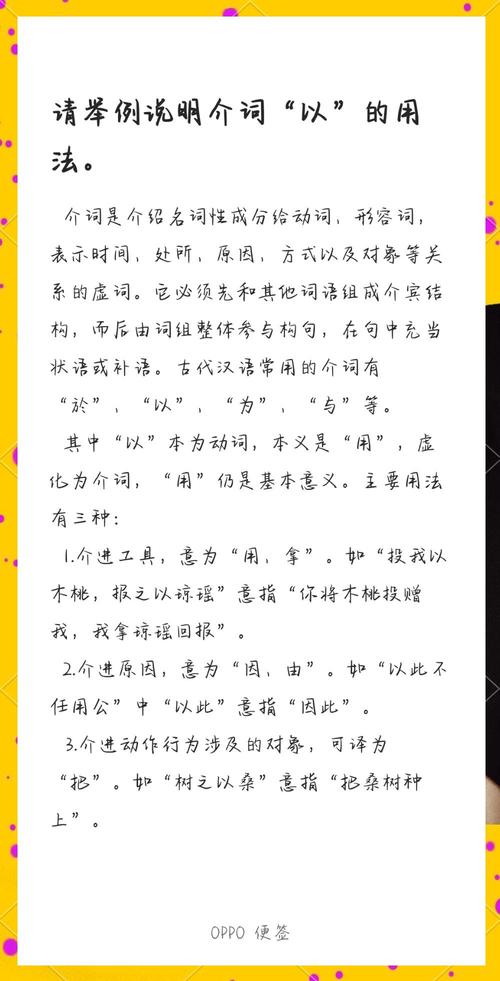 请举例说明介词“以”的用
法。
介词是介绍名词性成分给动词，形容词，
表示时间，处所，原因，方式以及对象等关
系的虚词。它必须先和其他词语组成介宾结
构，而后由词组整体参与构句，在句中充当
状语或补语。古代汉语常用的介词有
“於”、“以”、“为”、“与”等。
其中“以”本为动词，本义是“用”，虚
化为介词，“用”仍是基本意义。主要用法
有三种：
1.介进工具，意为“用、拿”。如“投我以
木桃，报之以琼瑶”意指“你将木桃投赠
我，我拿琼瑶回报”。
2.介进原因，意为“因、由”。如“以此不
任用公”中“以此”意指“因此”。
3.介进动作行为涉及的对象，可译为
“把”。如“树之以桑”意指“把桑树种
上”。
OPPO 便签